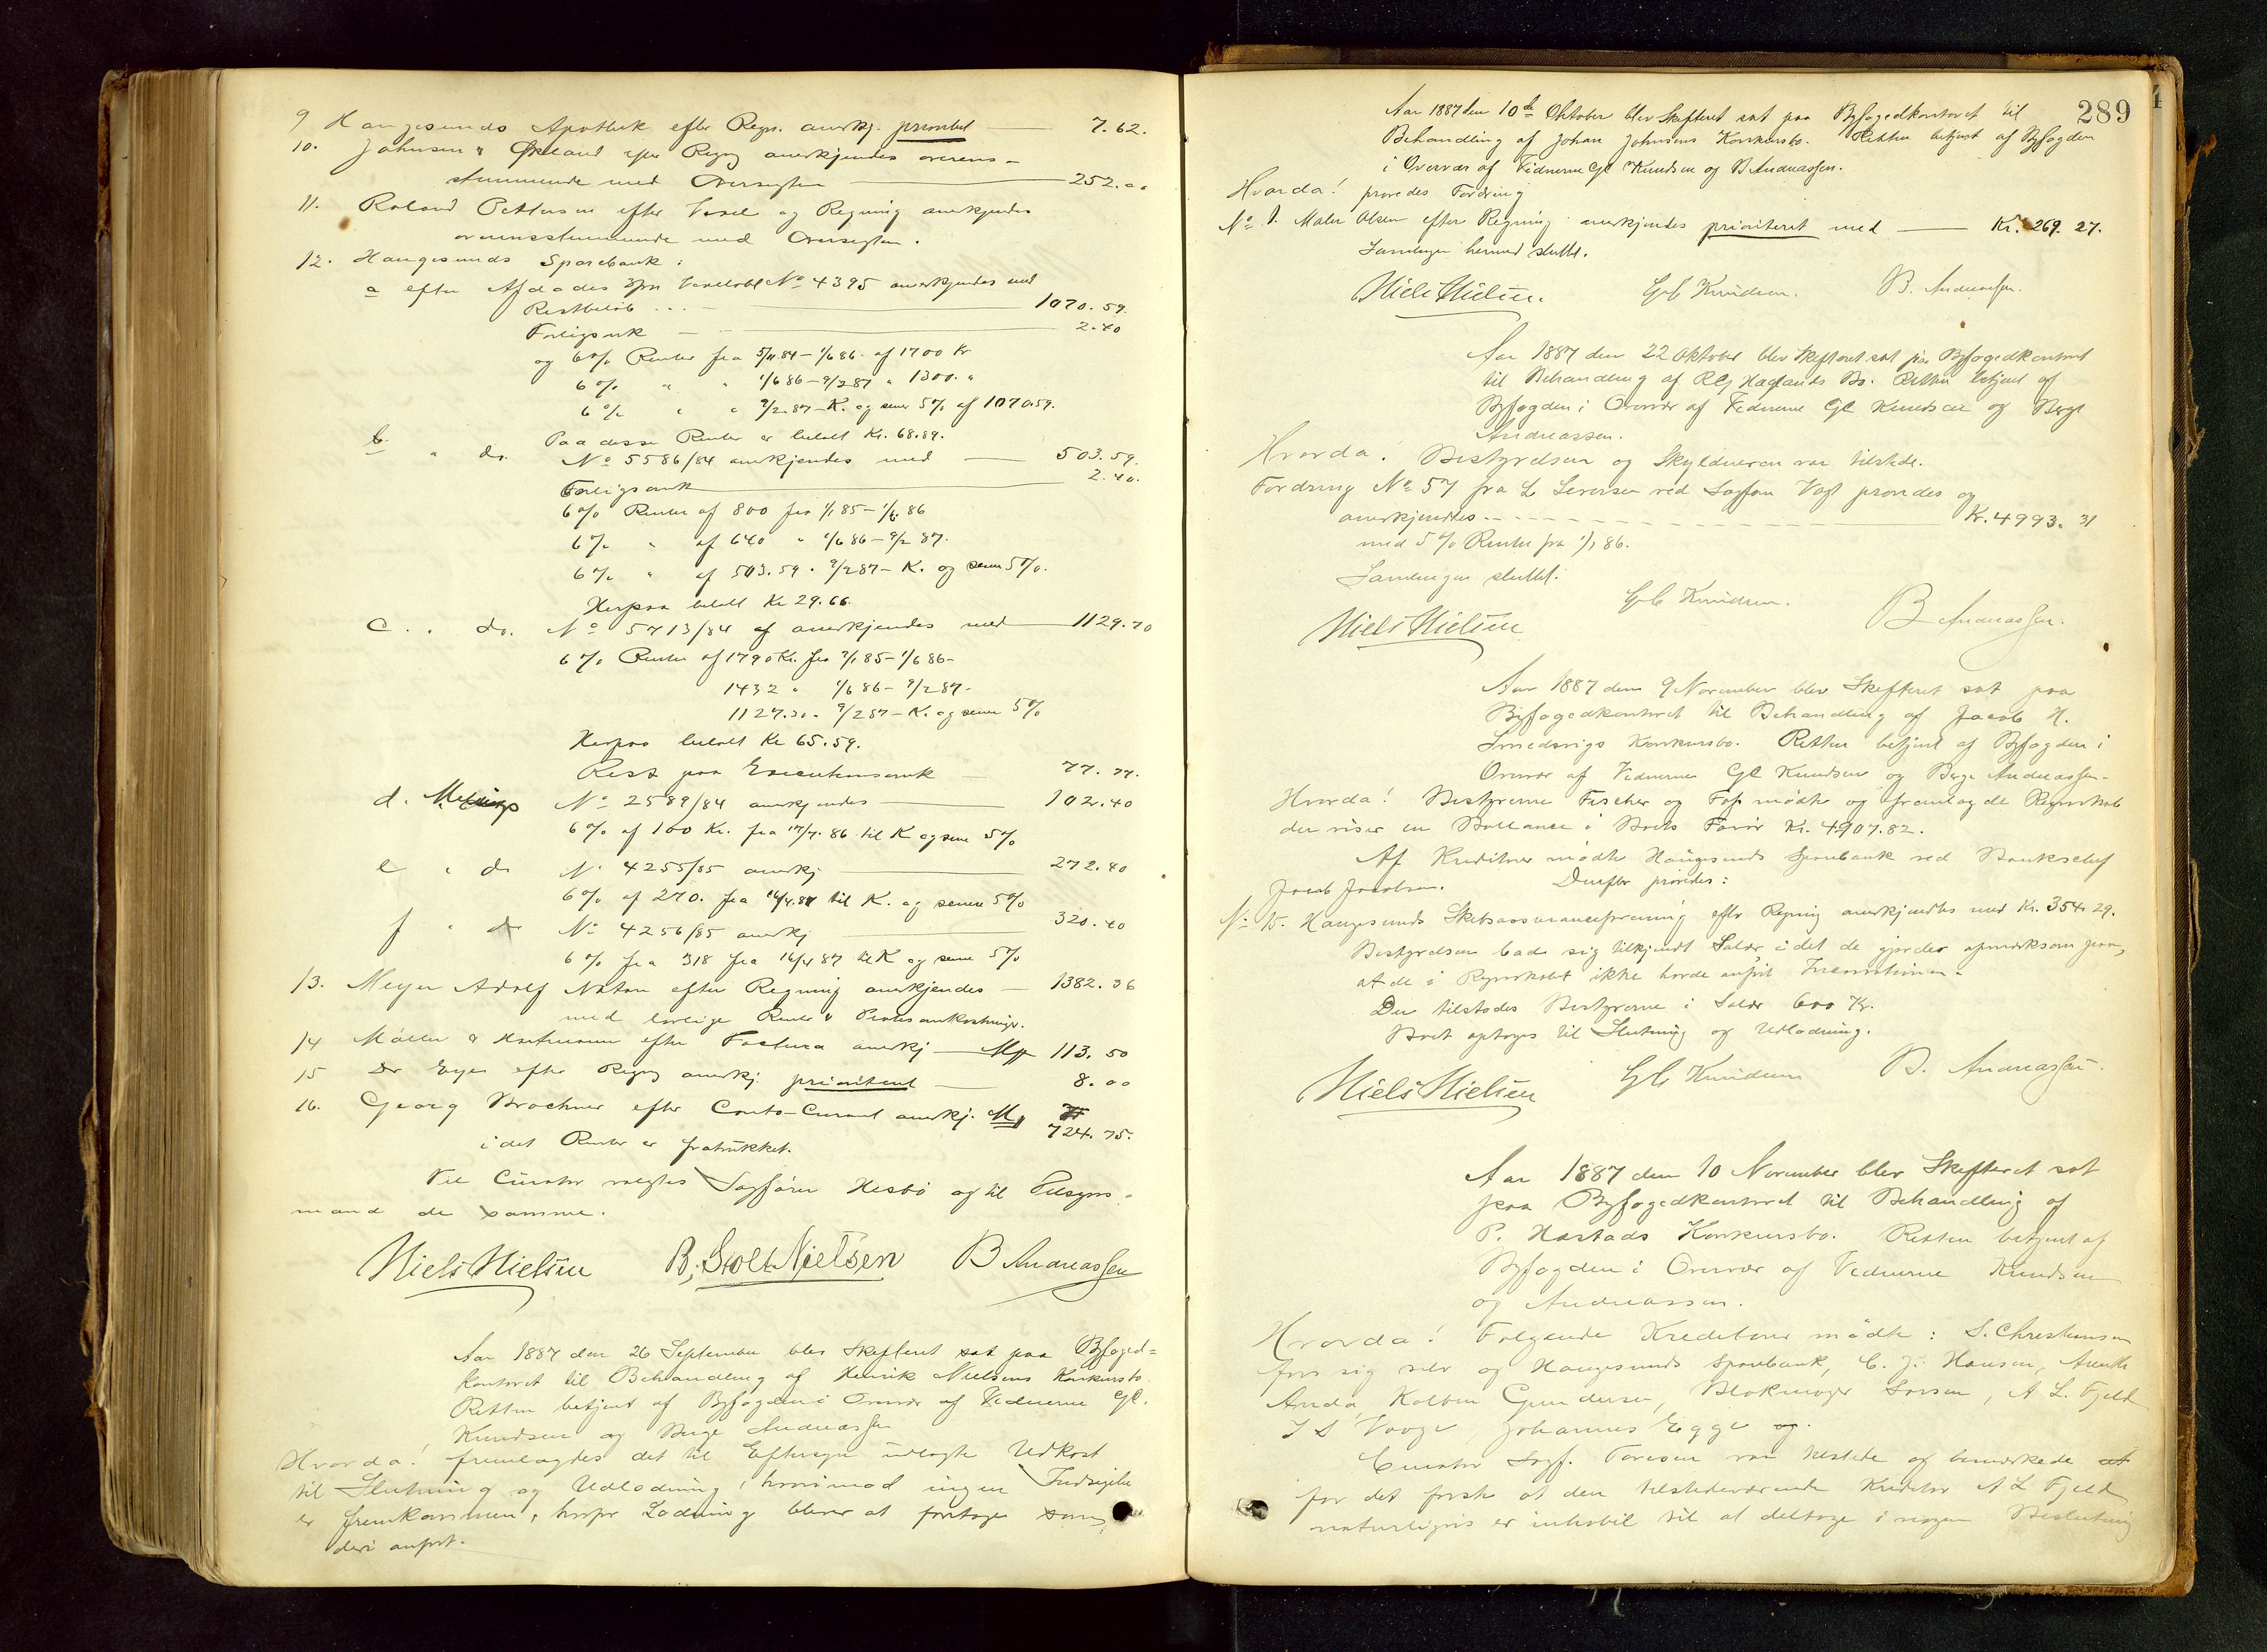 9 Haugesunds Apothek efter Regn. anerkj. prioritet — 7.62.
10. Johnsen & Økland efter Regng anerkjendes overens-
stemmende med Oversigten — 252.00
11. Roland Pettersen efter Vexel og Regning anerkjendes
overensstemmende med Oversigten.
12. Haugesunds Sparebank:
a efter Afdødes Vexelobl No 4395 anerkjendes med
Restbeløb ... — 1070.59.
Forligsomk — 2.40
og 6% Renter fra 5/11 84 – 1/6 86 af 1700 Kr
6% " " 1/6 86 – 9/2 87 " 1300. "
6% " " 9/2 87 – K. og senere 5% af 1070.59.
Paa disse Renter er betalt Kr. 68.89.
b. " do. No 5586/84 anerkjendes med — 503.59.
Forligsomk — 2.40.
6% Renter af 800 fra 1/1 85 – 1/6 86
6% " af 640 " 1/6 86 – 9/2 87.
6% " af 503.59. 9/2 87 – K. og senere 5%.
Herpaa betalt Kr 29.66.
c. " do. No 5713/84 af anerkjendes med — 1129.70
6% Renter af 1790 Kr. fra 2/1 85 – 1/6 86 –
1432 " 1/6 86 – 9/2 87.
1127.30. 9/2 87 – K. og senere 5%
Herpaa betalt Kr 65.59.
Rest paa Executionsomk — 77.77.
d. No 2589/84 anerkjendes — 102.40
6% af 100 Kr. fra 17/7. 86 til K og senere 5%
e " do No 4255/85 anerkj — 272.40
6% af 270. fra 16/4.87 til K. og senere 5%
f " do No 4256/85 anerkj — 320.40
6% fra 318 fra 16/4 87 til K og senere 5%
13. Meyer Adolf Natan efter Regning anerkjendes — 1382.36
med lovlige Renter & Protestomkostninger.
14 Møller & efter Factura anerkj — Mk 113.50
15 Dr Eger efter Regng anerkj. prioritent — 8.00
16. Georg Brochner efter Conto-Curant anerkj. M 724.75.
idet Renter er fratrukket.
Til Curator valgtes Sagfører Hesbø og til Tilsyns-
mænd de samme.
Niels Nielsen B. Stolt-Nielsen B Andreassen
Aar 1887 den 26 September blev Skifteret sat paa Byfoged-
kontoret til Behandling af Henrik Nielsens Konkursbo
Retten betjent af Byfogden i Overvær af Vidnerne Gl.
Knudsen og Berge Andreassen
Hvorda! fremlagdes det til Eftersyn udlagte Udkast
til Slutning og Udlodning, hvorimod ingen Indsigelse
er fremkommen, hvorfor Lodning bliver at foretage som
deri anført.
289
Aar 1887 den 10de Oktober blev Skifteret sat paa Byfogedkontoret til
Behandling af Johan Johnsens Konkursbo. Retten betjent af Byfogden
i Overvær af Vidnerne Gl Knudsen og B Andreassen.
Hvorda! prøvedes Fordring
No 1. Maler Olsen efter Regning anerkjendes prioriteret med — Kr. 269.27.
Samlingen hermed sluttet.
Niels Nielsen. Gl Knudsen. B. Andreassen.
Aar 1887 den 22 Oktober blev Skifteret sat paa Byfogedkontoret
til Behandling af R G Haglands Bo. Retten betjent af
Byfogden i Overvær af Vidnerne Gl Knudsen og Berge
Andreassen.
Hvorda! Bestyrelsen og Skyldneren var tilstede.
Fordring No 57 fra L Severisen ved Sagfører Vogt prøvedes og
anerkjendtes — Kr. 4993.31
med 5% Renter fra 1/1 86.
Samlingen sluttet.
Niels Nielsen Gl Knudsen. B Andreassen.
Aar 1887 den 9 November blev Skifteret sat paa
Byfogedkontoret til Behandling af Jacob H.
Smedsvigs Konkursbo. Retten betjent af Byfogden i
Overvær af Vidnerne Gl Knudsen og Berge Andreassen.
Hvorda! Bestyrerne Fischer og mødte og fremlagde Regnskab
der viser en Ballance i Boets Favør Kr. 4907.82.
Af Kreditorer mødte Haugesunds Sparebank ved Bankchef
Jacob Jacobsen. Derefter prøvedes:
No 15. Haugesunds Skibsassuranceforening efter Regning anerkjendtes med Kr. 354.29.
Bestyrelsen bad sig tilkjendt Salær idet de gjordes opmærksom paa,
at de i Regnskabet ikke havde anført
Der tilstodes Bestyrerne i Salær 600 Kr.
Boet optoges til Slutning og Udlodning.
Niels Nielsen Gl Knudsen B. Andreassen.
Aar 1887 den 10 November blev Skifteret sat
paa Byfogedkontoret til Behandling af
P. Hastads Konkursbo. Retten betjent af
Byfogden i Overvær af Vidnerne Knudsen
og Andreassen.
Hvorda! Følgende Kreditorer mødte: S. Christensen
for sig selv og Haugesunds Sparebank, C. J. Hansen,
Anda, Kolben Gundersen, Blokmager Larsen, A L. Fjeld
I S Vaage Johannes Egge og.
Curator Sagf. Toresen var tilstede og bemærkede at
for det første at den tilstedeværende Kreditor A L Fjeld
naturligvis er inhabil til at deltage i nogen Beslutning